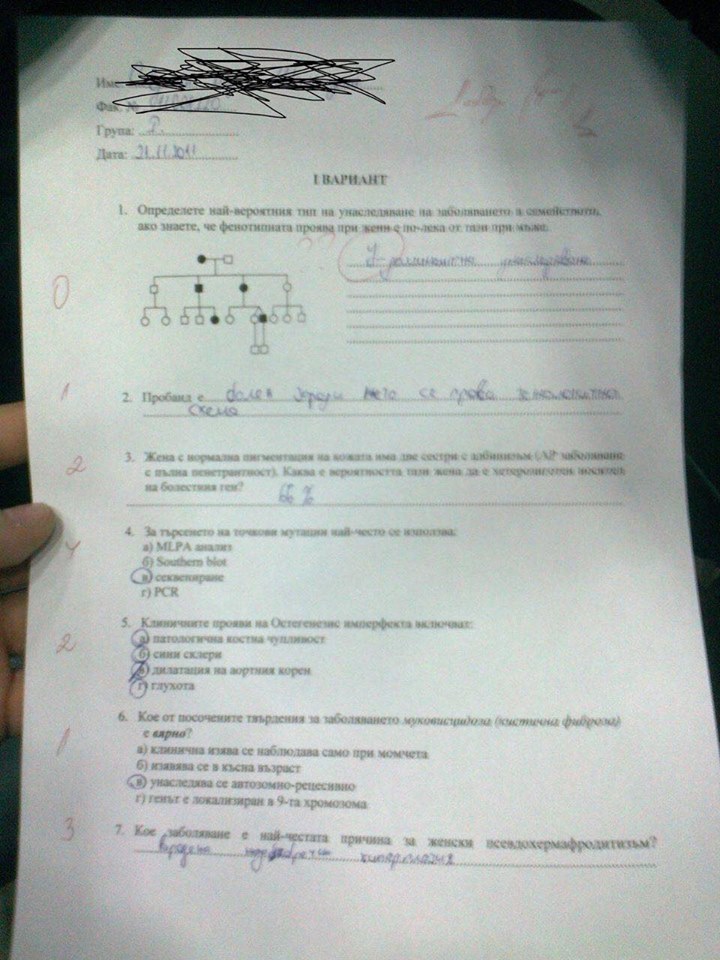 Име:
Фак. №
Група:
Дата: 21.11.2011
I ВАРИАНТ
1. Определете най-вероятния тип на унаследяване на заболяването в семейството,
ако знаете, че фенотипната проява при жени е по-лека от тази при мъже.
??
0
1
2. Пробанд е болен заради него се прави
схема
2
3. Жена с нормална пигментация на кожата има две сестри с албинизъм (АР заболяване
с пълна пенетрантност). Каква е вероятността тази жена да е хетерозиготен носител
на болестния ген? 66 %
4. За търсенето на точкови мутации най-често се използва:
а) MLPA анализ
б) Southern blot
в) секвениране
г) PCR
5. Клиничните прояви на Остегенезис имперфекта включват:
2
а) патологична костна чупливост
б) сини склери
в) дилатация на аортния корен
г) глухота
6. Кое от посочените твърдения за заболяването муковисцидоза (кистична фиброза)
е вярно?
1
а) клинична изява се наблюдава само при момчета
б) изявява се в късна възраст
в) унаследява се автозомно-рецесивно
г) генът е локализиран в 9-та хромозома
3
7. Кое заболяване е най-честата причина за женски псевдохермафродитизъм?
вродена надбъбречна хиперплазия